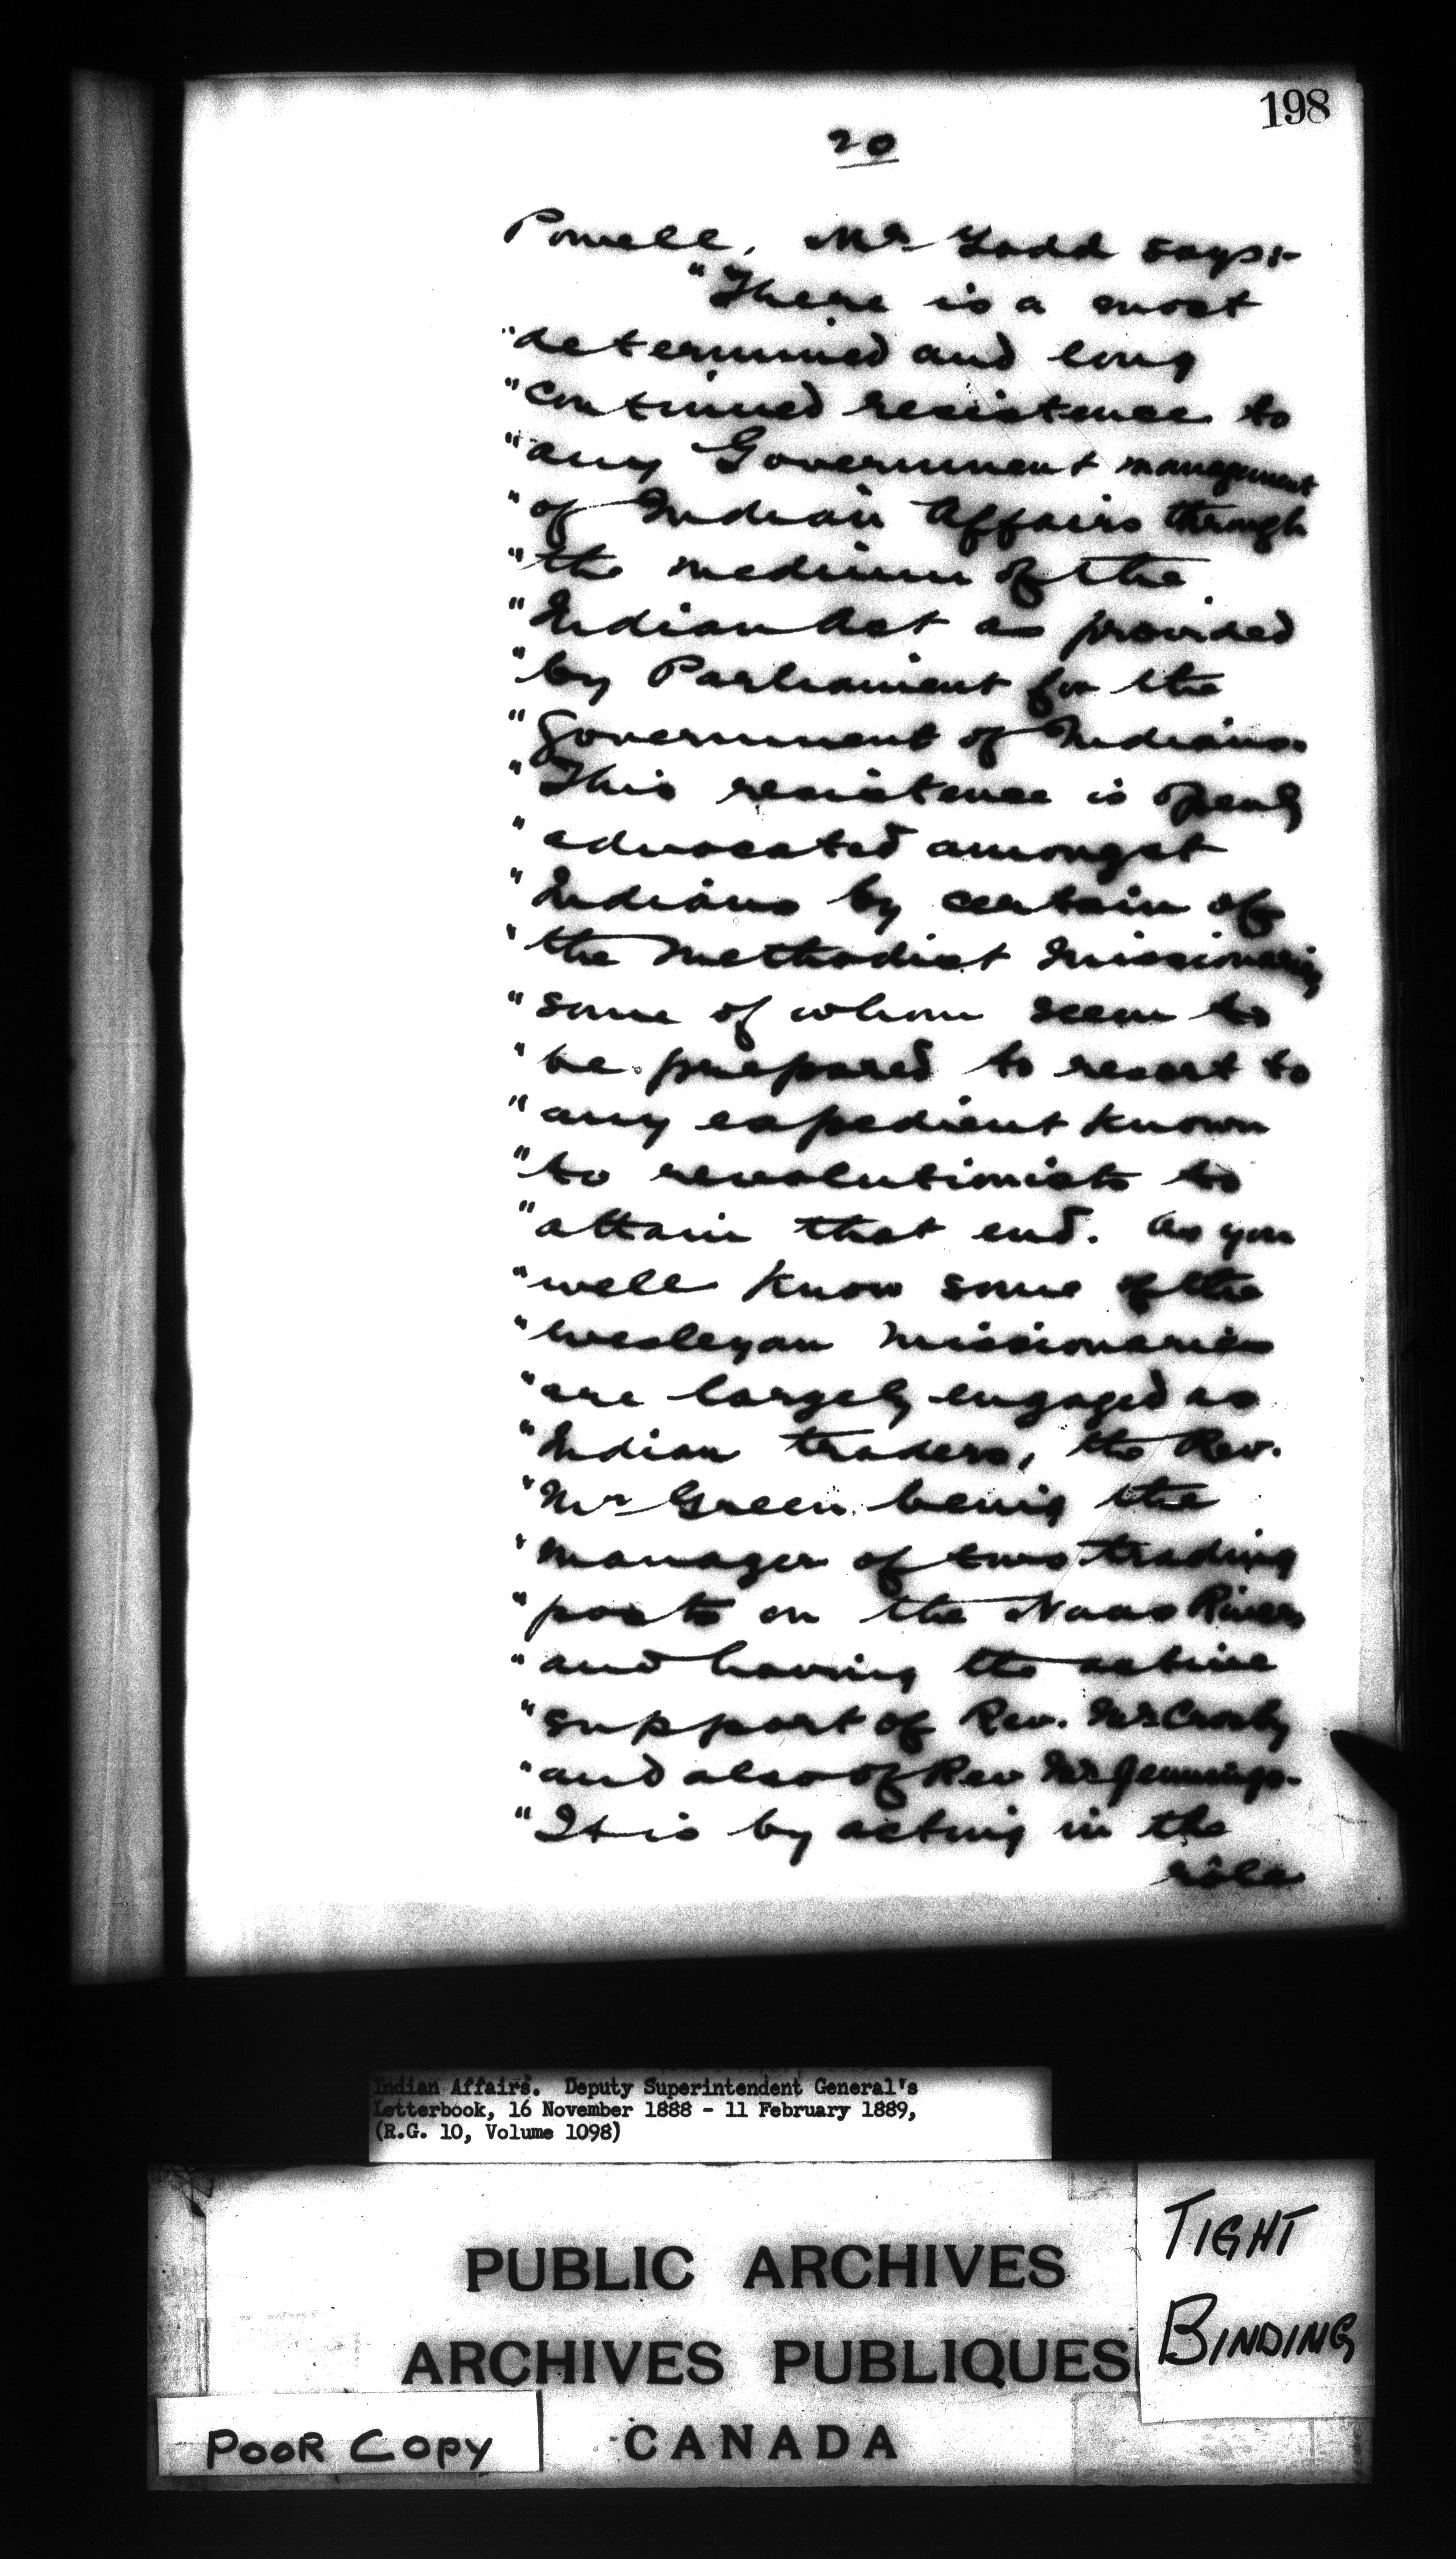 198
20
Powell, Mr Todd says:-
"There is a most
"determined and long
"continued resistence to
"any Government management
"of Indian Affairs through
"the medium of the
"Indian Act as provided
"by Parliament for the
"Government of Indians.
"This resistence is openly
"advocated amongst
"Indians by certain of
"the Methodist Missionaries
"some of whom seem to
"be prepared to resort to
"any expedient known
"to revolutionists to
"attain that end. As you
"well know some of the
"Wesleyan Missionaries
"are largely engaged as
"Indian traders, the Rev.
"Mr Green being the
"manager of two trading
"posts on the Naas River,
"and having the active
"support of Rev. Mr Crosby
"and also of Rev Mr Jennings.
"It is by acting in the
rôle
Indian Affairs. Deputy Superintendent General's
Letterbook, 16 November 1888 - 11 February 1889,
(R.G. 10, Volume 1098)
PUBLIC ARCHIVES
ARCHIVES PUBLIQUES
CANADA
TIGHT
BINDING
POOR COPY